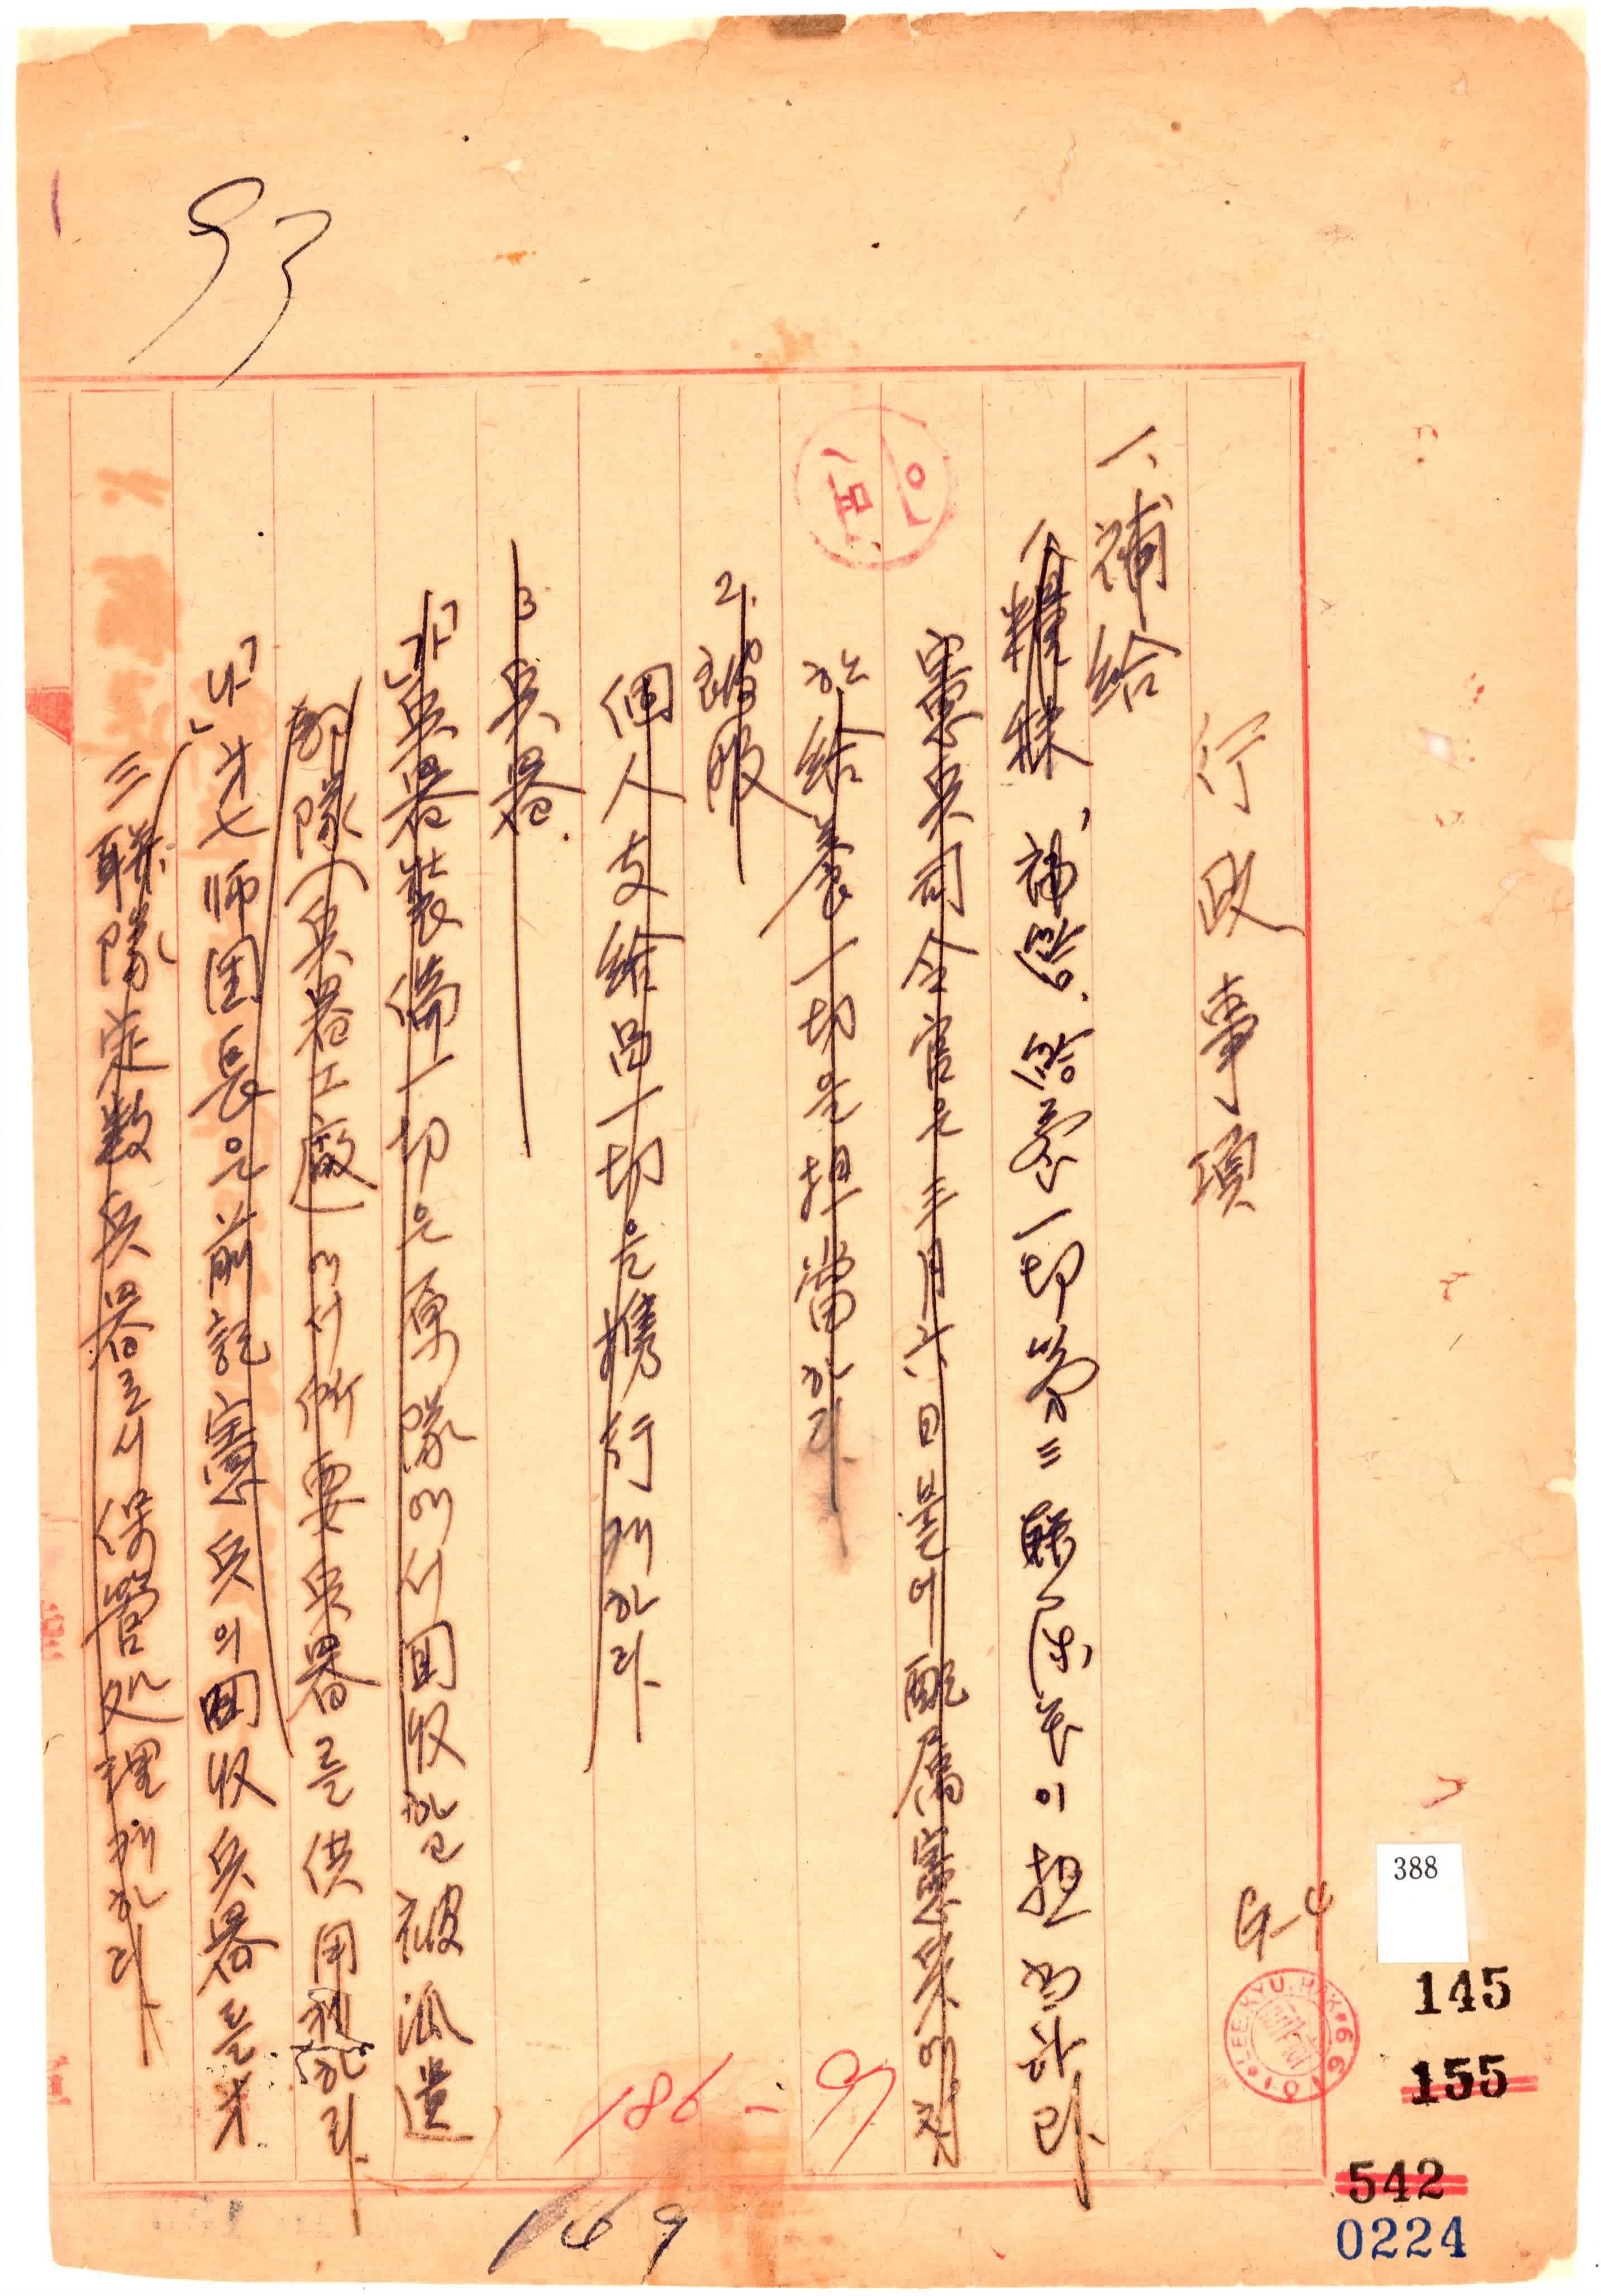 行政事項
G-4
一、補給
1. 糧秣, 補給, 給養 一切 第三聯隊 이 担当하라.
憲兵司令官은 三月六日 附 配屬憲兵에
給養一切을 担當하라.
2. 被服
個人支給品一切을 携行케하라.
3 兵器.
「가」 兵器裝備一切은 原隊에서 回收하고 被派遣
部隊(兵器工廠)에서 所要兵器를 供用하라.
「나」 才七師団長은 前記憲兵의 回收兵器를 才
三聯隊定數兵器로서 保管処理케하라.
93
186-97
169
LEE, KYU, HAK
6610
388
145
155
542
0224